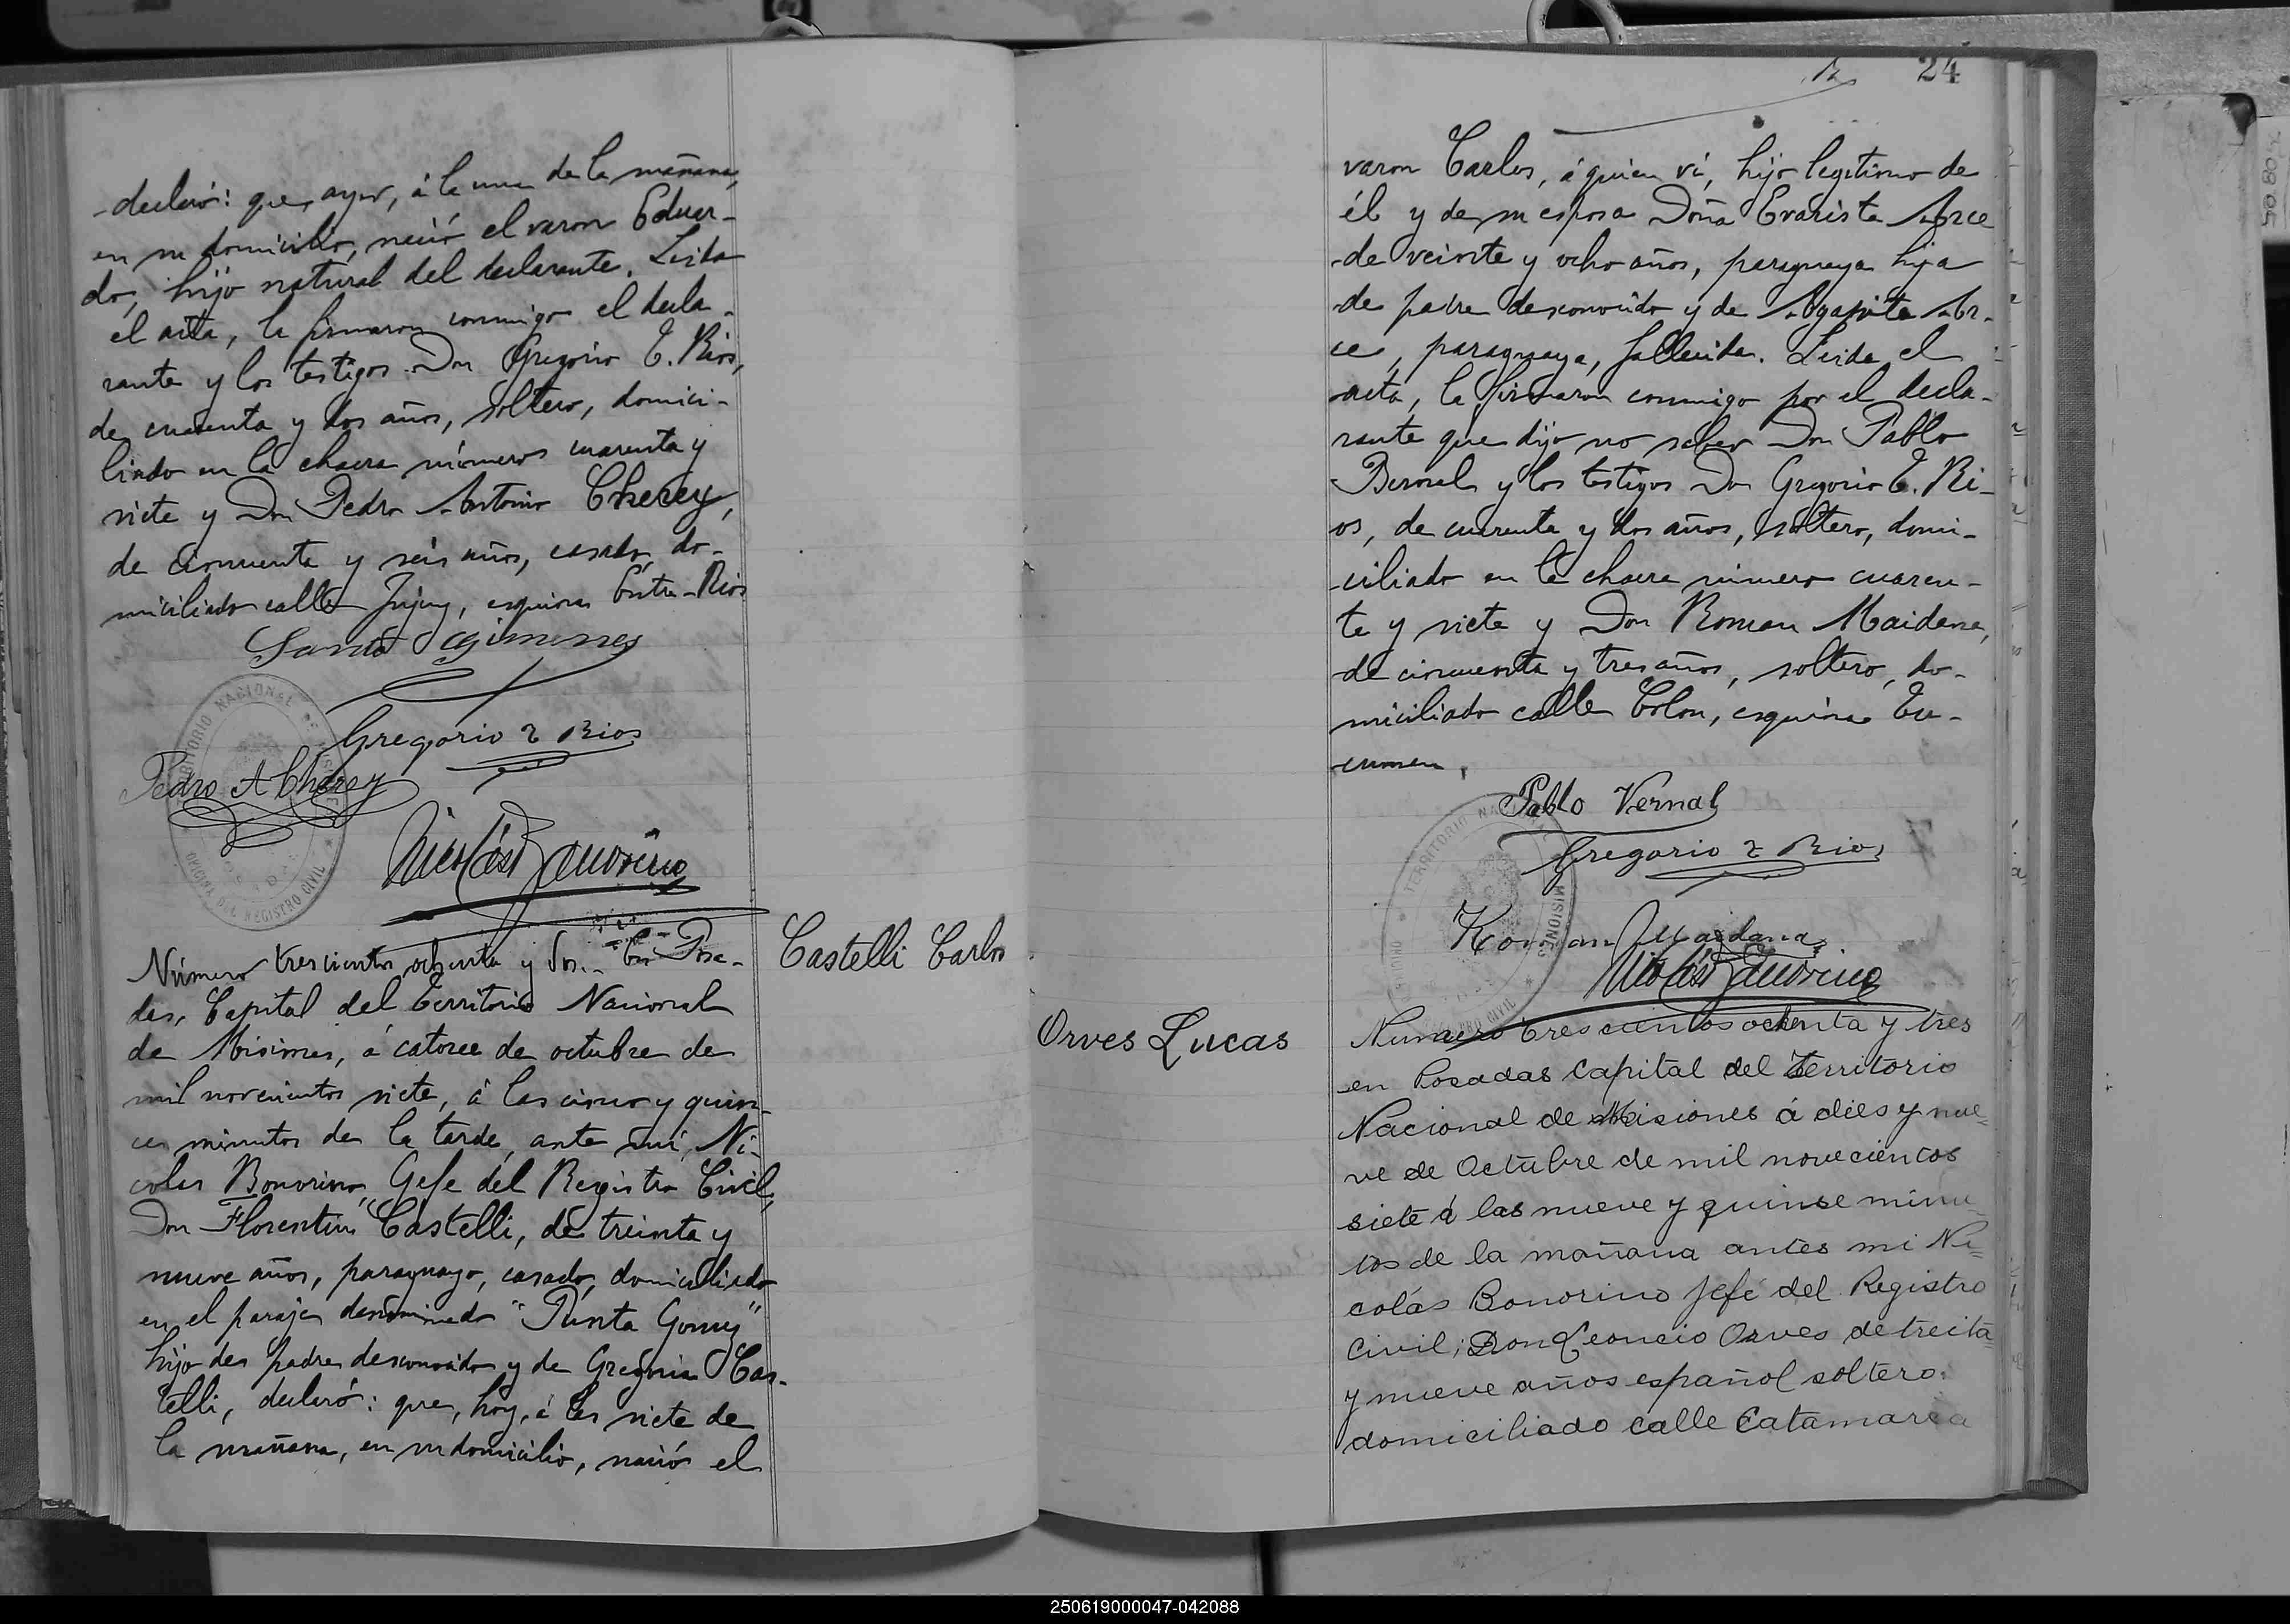 declaró: que, ayer, á la una de la mañana,
en su domicilio, nació el varon Eduar-
do, hijo natural del declarante. Leida
el acta, la firmaron conmigo el decla-
rante y los testigos Don Gregorio E. Rios,
de cuarenta y dos años, soltero, domici-
liado en la chacra número cuarenta y
siete y Don Pedro Antonio Cherey,
de cincuenta y seis años, casado, do-
miciliado calle Jujuy, esquina Entre-Rios
Gimenes
Gregorio E Rios
Pedro A Cherey
Nicolás Bonorino
TERRITORIO NACIONAL DE MISIONES
OFICINA DEL REGISTRO CIVIL
POSADAS
Número trescientos ochenta y dos. En Posa-
das, Capital del Territorio Nacional
de Misiones, á catorce de octubre de
mil novecientos siete, á las cinco y quin-
ce minutos de la tarde, ante mi, Ni-
colas Bonorino, Gefe del Registro Civil,
Don Florentin Castelli, de treinta y
nueve años, paraguayo, casado, domiciliado
en el paraje denominado "Punta Gomez"
hijo de padre desconocido y de Gregoria Cas-
telli, declaró: que, hoy, á las siete de
la mañana, en su domicilio, nació el
Castelli Carlos
24
varon Carlos, á quien ví, hijo legitimo de
él y de su esposa Doña Evarista Arce
de veinte y ocho años, paraguaya hija
de padre desconocido y de Agapita Ar-
ce, paraguaya, fallecida. Leida el
acta, la firmaron conmigo por el decla-
rante que dijo no saber Don Pablo
Bernal y los testigos Don Gregorio E. Ri-
os, de cuarenta y dos años, soltero, domi-
ciliado en la chacra número cuaren-
ta y siete y Don Roman Maidana,
de cincuenta y tres años, soltero, do-
miciliado calle Colon, esquina Tu-
cuman.
Pablo Vernal
Gregorio E Rios
Roman Maidana
Nicolás Bonorino
TERRITORIO NACIONAL MISIONES
Orves Lucas
Numero trescientos ochenta y tres
en Posadas Capital del Territorio
Nacional de Misiones á dies y nue=
ve de Octubre de mil novecientos
siete á las nueve y quinse minu=
tos de la mañana antes mi Ni=
colás Bonorino Jefe del Registro
Civil; Don Leoncio Orves de treita
y nueve años español soltero
domiciliado calle Catamarca
250619000047-042088